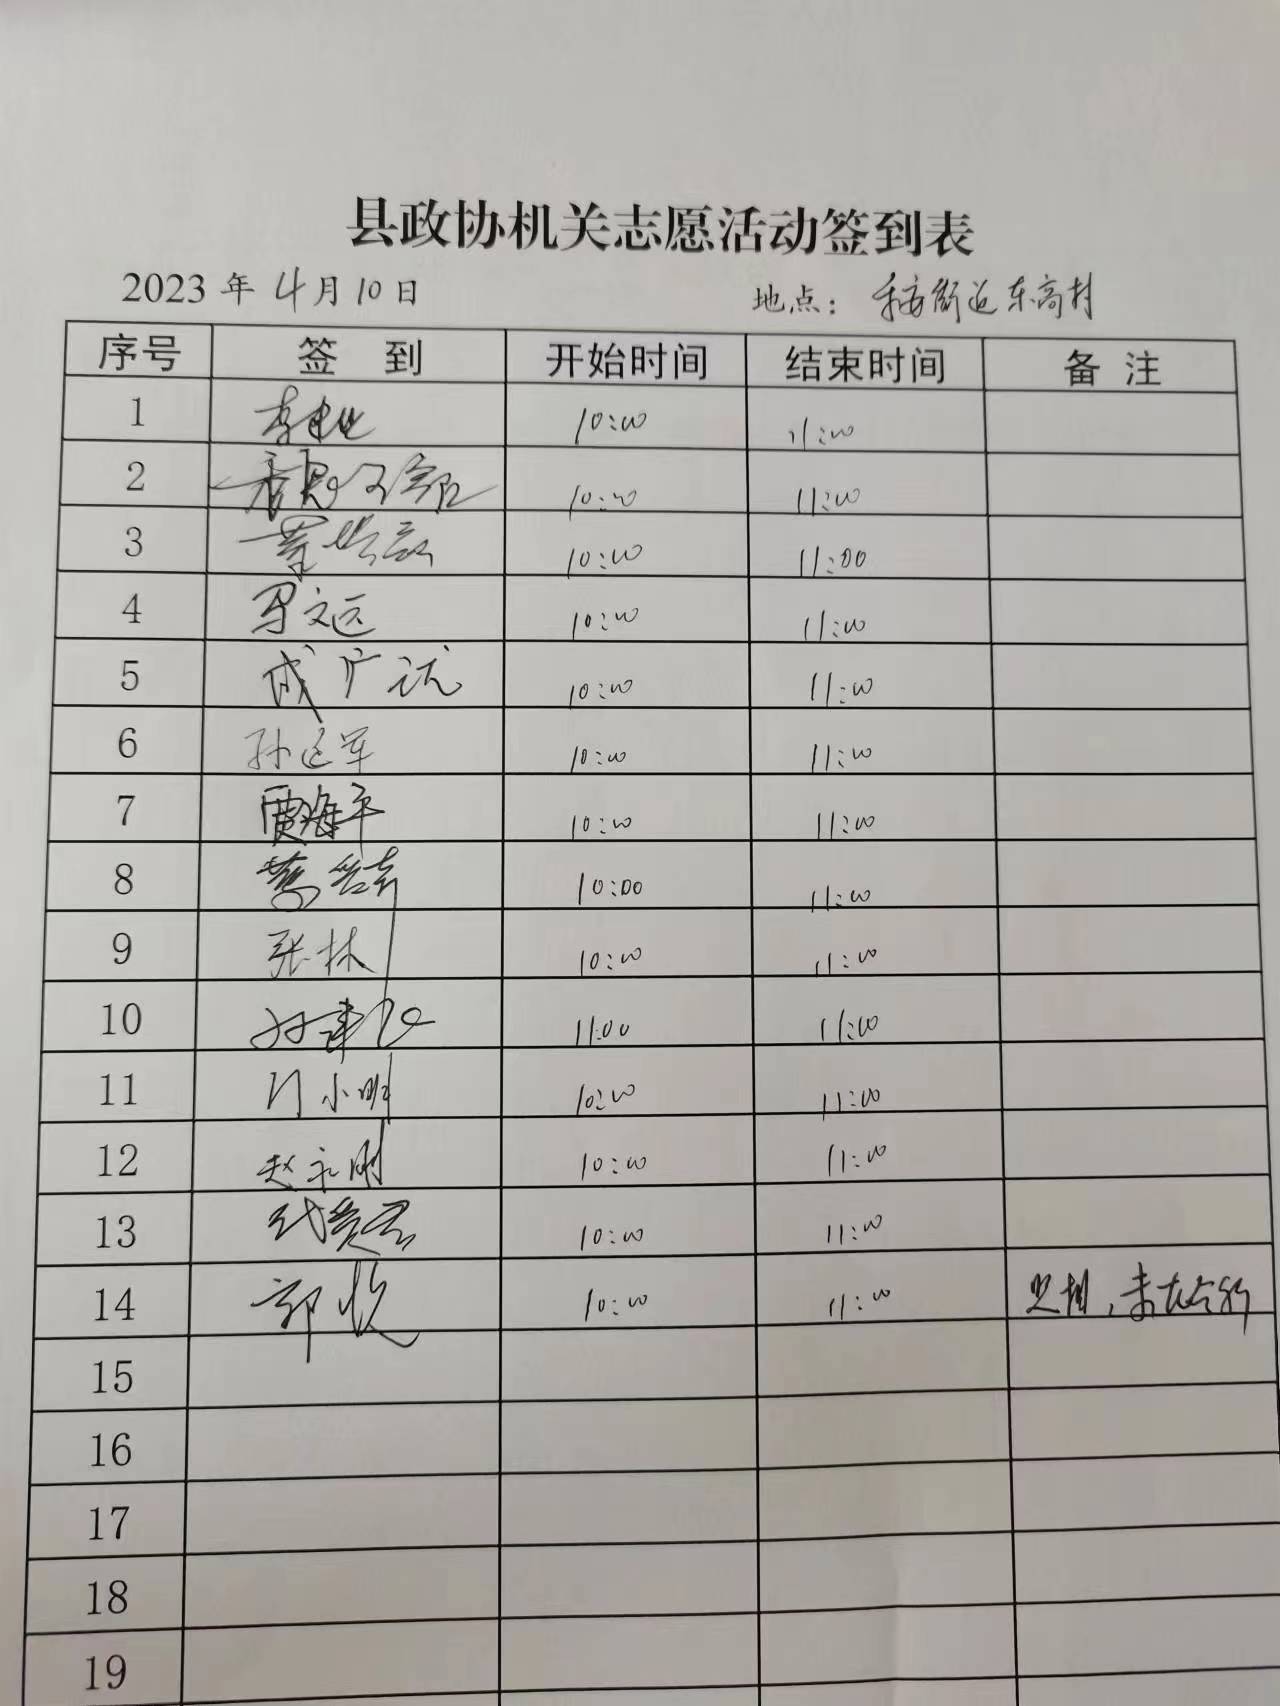 县政协机关志愿活动签到表
2023年4月10日 地点：街道东高村
序号 签 到 开始时间 结束时间 备 注
1 李建业 10:00 11:00
2 10:00 11:00
3 10:00 11:00
4 马文远 10:00 11:00
5 成广 10:00 11:00
6 孙延军 10:00 11:00
7 贾海平 10:00 11:00
8 10:00 11:00
9 张林 10:00 11:00
10 11:00 11:00
11 闫小明 10:00 11:00
12 赵永刚 10:00 11:00
13 10:00 11:00
14 郭悦 10:00 11:00 照相，未在合影
15
16
17
18
19